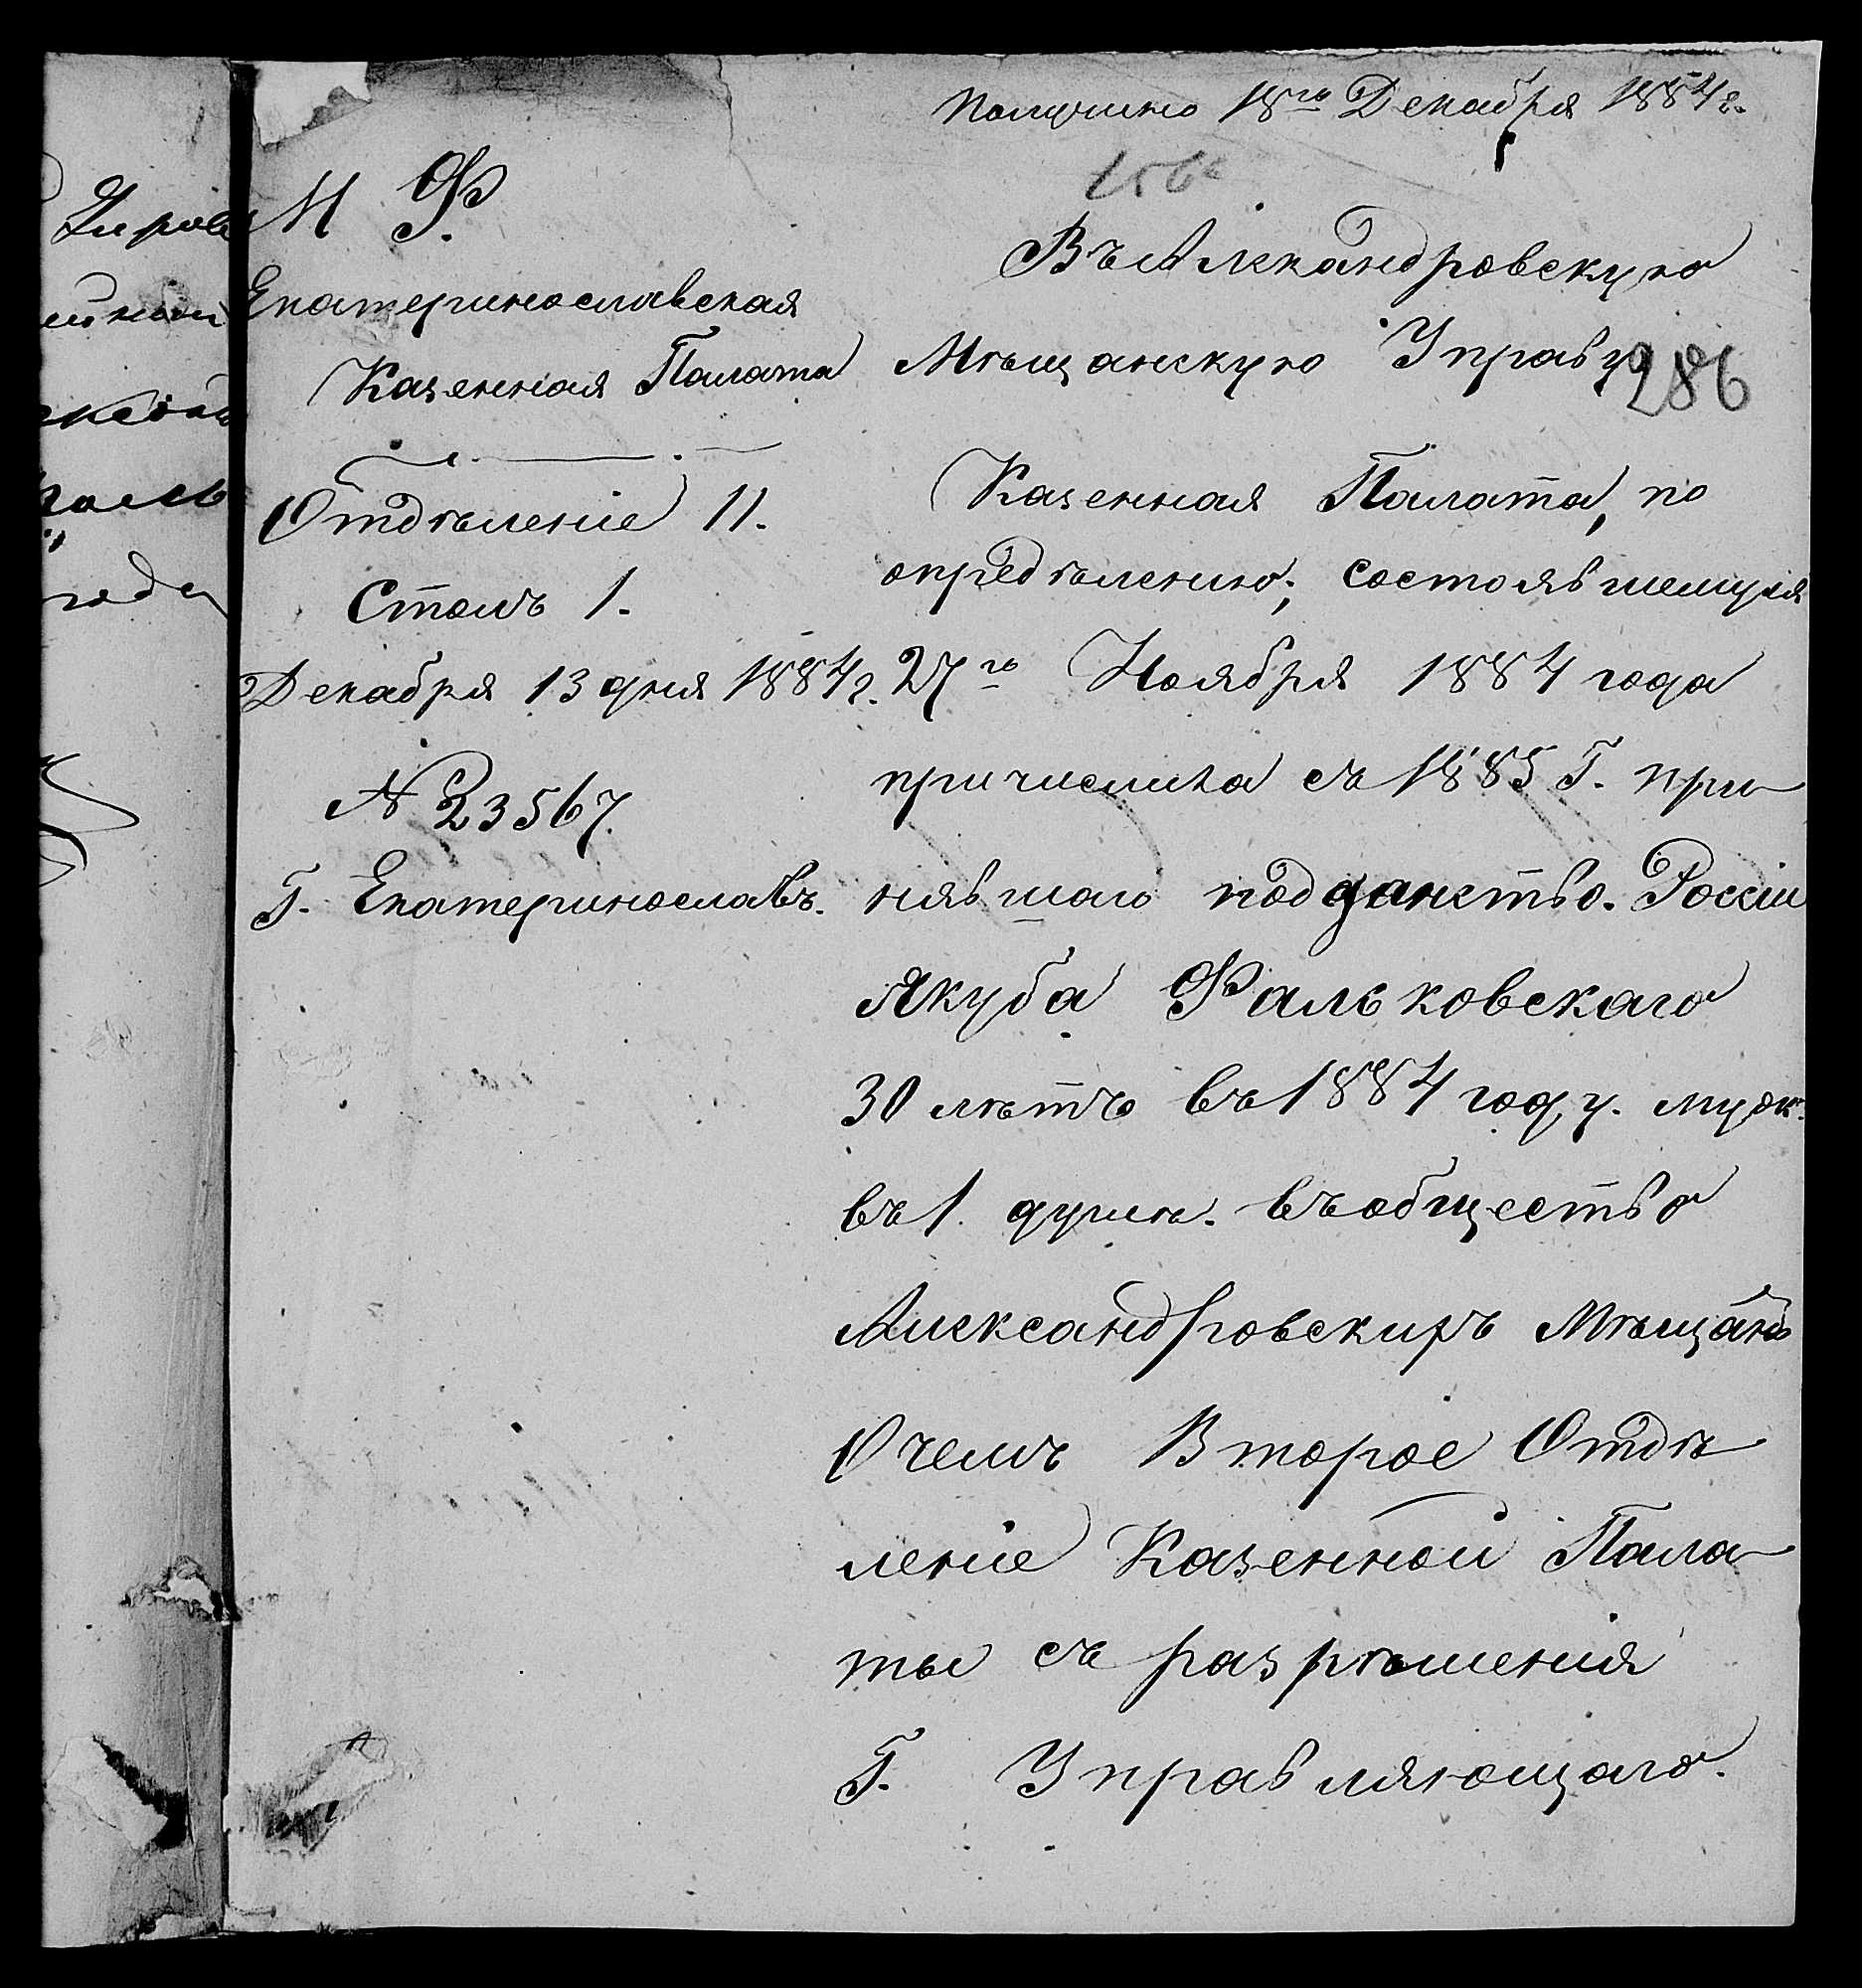 Получино 18го Декабря 1884 г.
М Ф.
Екатеринославская
Казенная Палата
Отдѣленіе II.
Столъ 1.
Декабря 13 дня 1884 г.
№ 23567.
Г. Екатеринославъ.
Въ Алекандровскую
Мѣщанскую Управу
286
Казенная Палата, по
опредѣленію, состоявшемуся
27го Ноября 1884 года
причислила съ 1885 Г. при
нявшаго подданство. Россіи
Якуба Фальковскаго
30 лѣтъ въ 1884 году. муж.
въ 1. душѣ. въ общество
Александровскихъ Мѣщанъ
О чемъ Второе Отдѣ
леніе Казенной Пала
ты съ разрѣшенія
Г. Управляющаго.